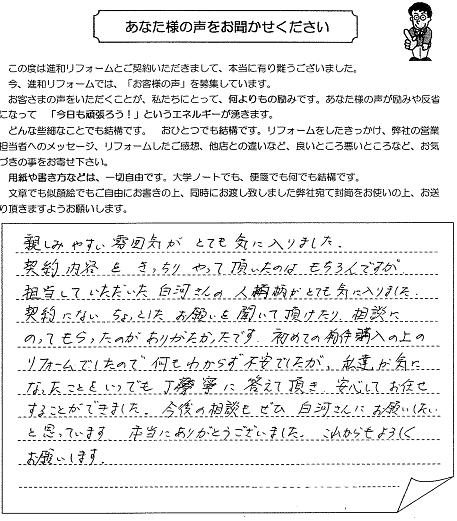 あなた様の声をお聞かせください
この度は進和リフォームとご契約いただきまして、本当に有り難うございました。
今、進和リフォームでは、「お客様の声」を募集しています。
お客さまの声をいただくことが、私たちにとって、何よりもの励みです。あなた様の声が励みや反省
になって　「今日も頑張ろう！」というエネルギーが湧きます。
どんな些細なことでも結構です。　おひとつでも結構です。リフォームをしたきっかけ、弊社の営業
担当者へのメッセージ、リフォームしたご感想、他店との違いなど、良いところ悪いところなど、お気
づきの事をお寄せ下さい。
用紙や書き方などは、一切自由です。大学ノートでも、便箋でも何でも結構です。
文章でも似顔絵でもご自由にお書きの上、同時にお渡し致しました弊社宛て封筒をお使いの上、お送
り頂きますようお願いします。
親しみやすい雰囲気が とても気に入りました.
契約内容を きっちり やって頂いたのは もちろんですが
担当していただいた 白河さんの 人柄が とても気に入りました.
契約にない ちょっとした お願いを 聞いて頂けたり 相談に
のってもらったのが ありがたかったです. 初めての 物件購入の上の
リフォームでしたので 何もわからず 不安でしたが、私達が気に
なったことをいつでも 丁寧に 答えて頂き. 安心して お任せ
することができました. 今後の相談も ぜひ 白河さんに お願いしたい
と思っています 本当にありがとうございました. これからもよろしく
お願いします.